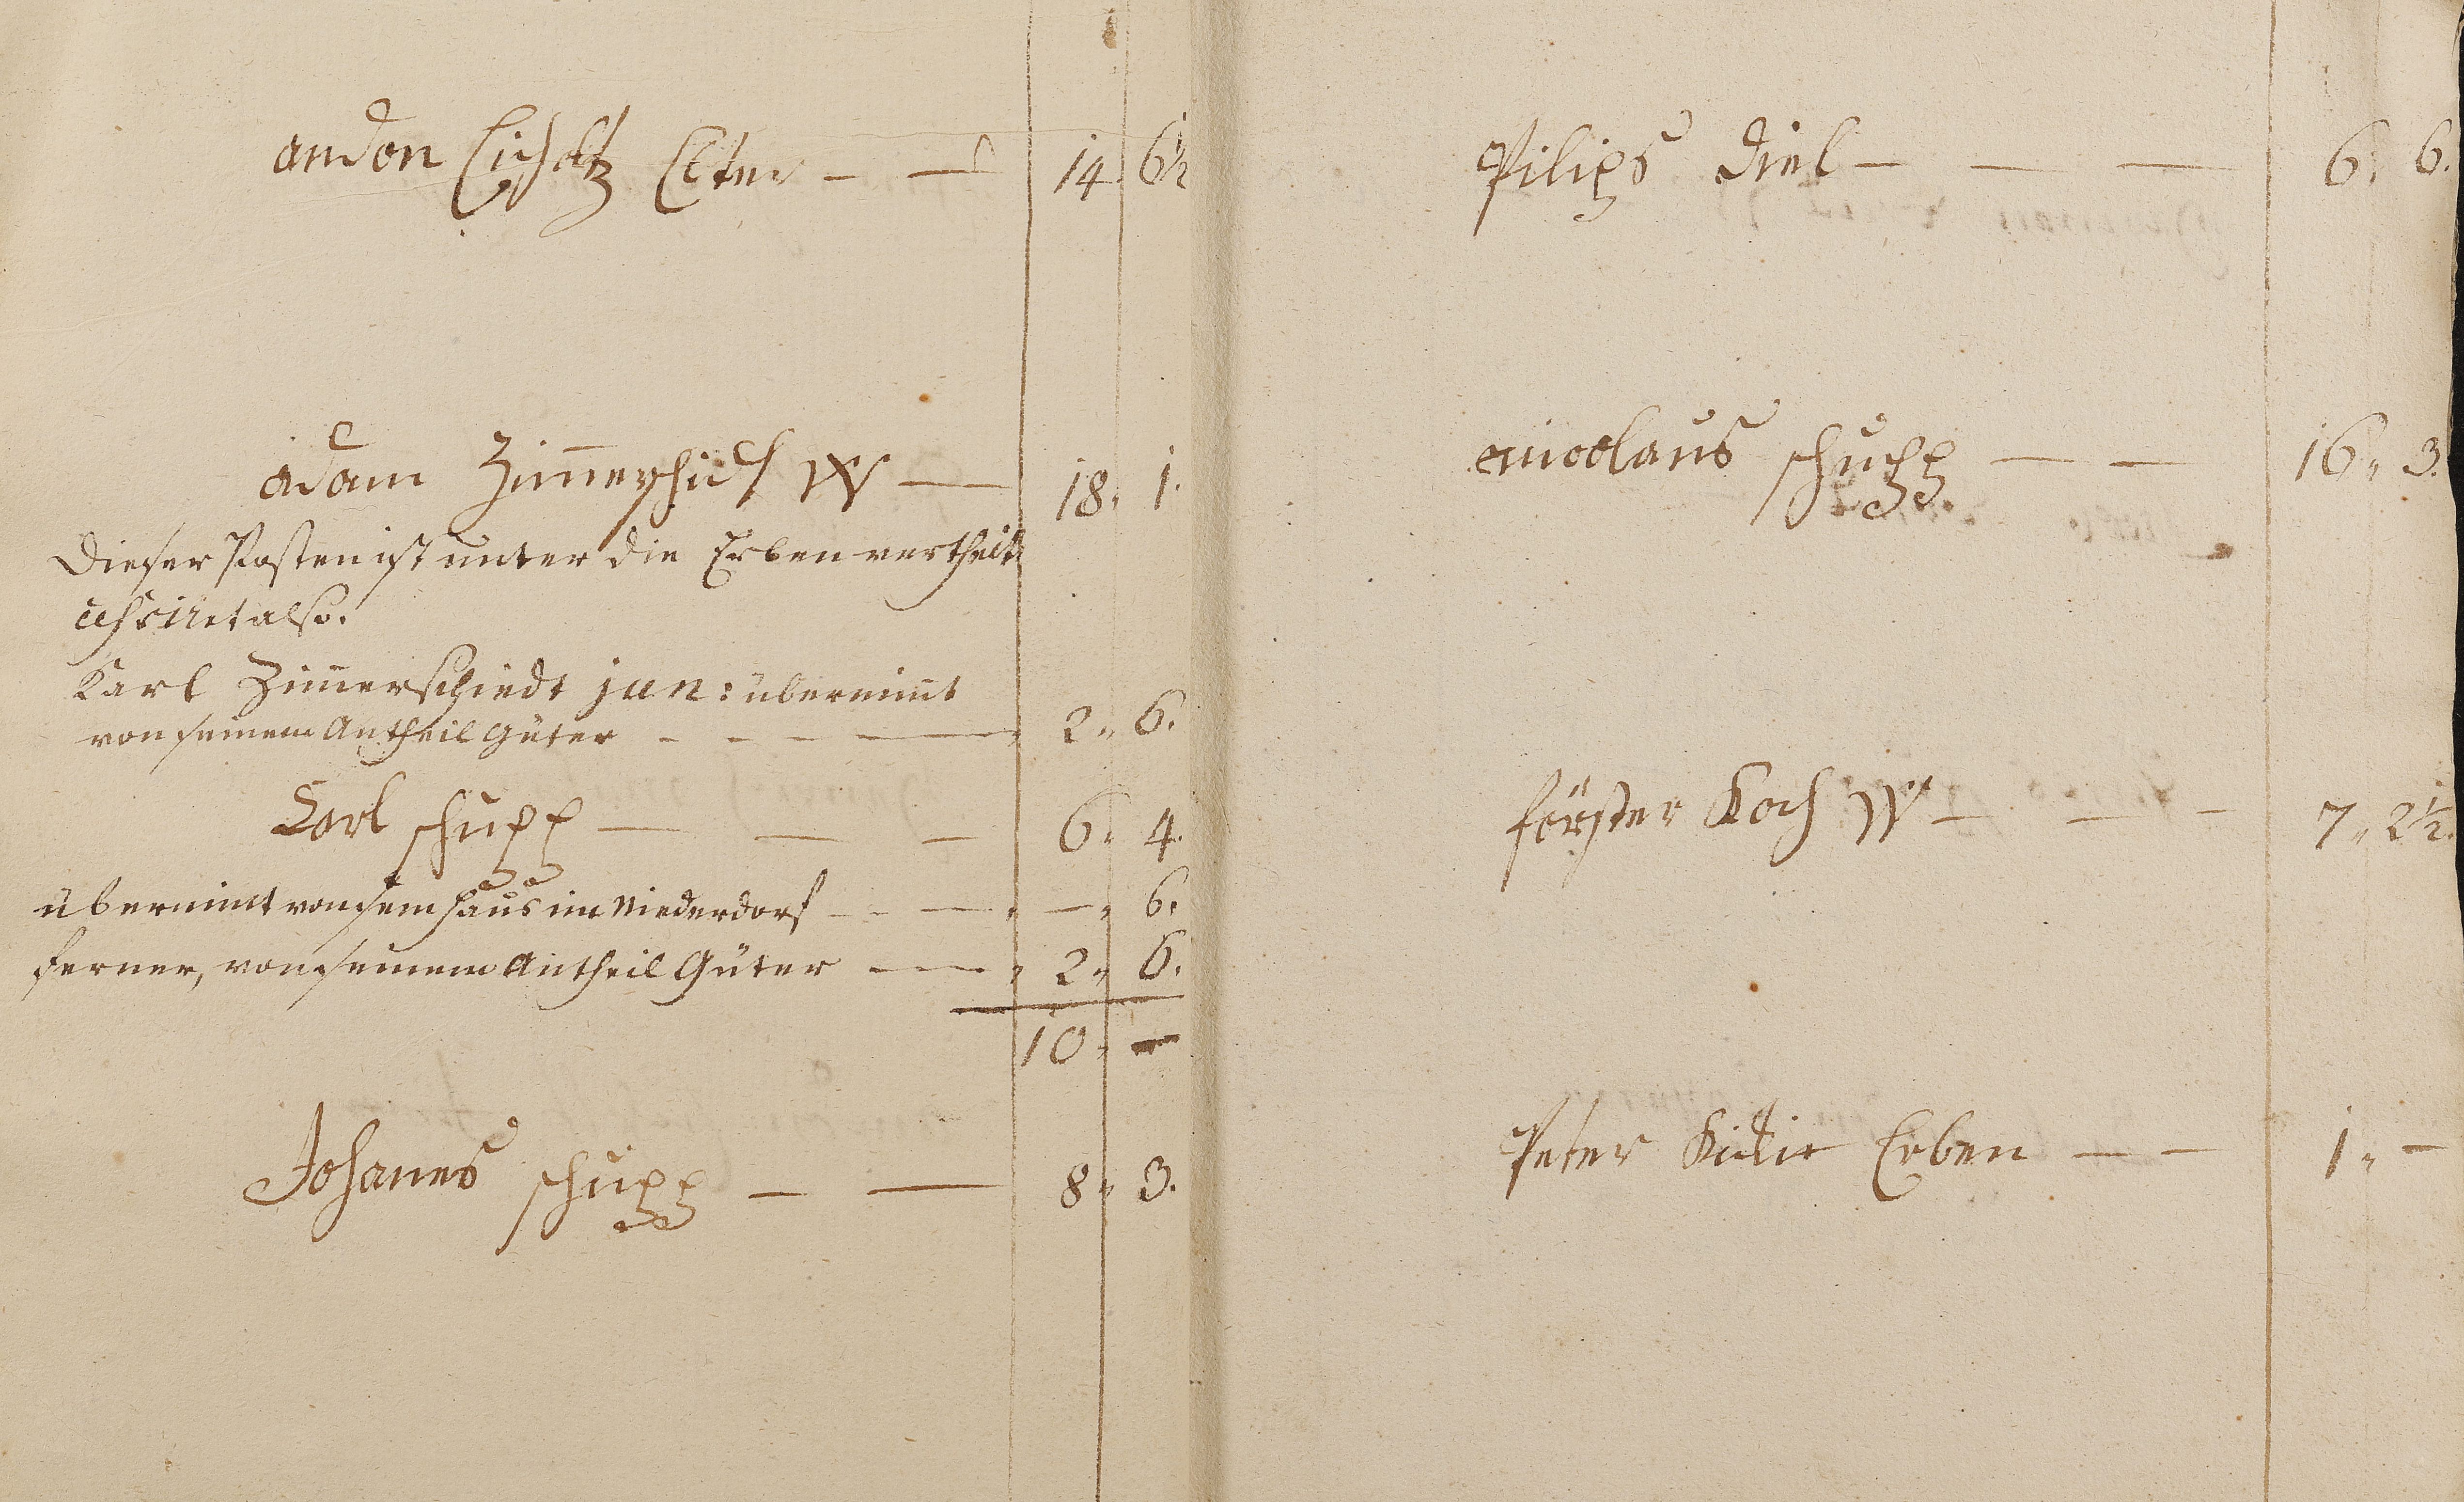 andon Eichholtz Elter — — 14 6½
adam Zimmerschid W — 18. 1.
Dieser Posten ist unter die Erben vertheilt
cessiret also.
Karl Zimmerschiedt jun: übernimt
von seinem Antheil Güter - - - — 2. 6.
Carl schupp — — — 6. 4.
übernimt von sem Haus im Niederdorf - - — — 6.
ferner, von seinem Antheil Güter — — 2. 6.
10. —
Johanes schupp — — 8. 3.
Pilips Diel — — — 6. 6.
nicolaus schupp — — 16. 3.
förster Koch W — — - 7. 2½.
Peter Erben — — 1. —